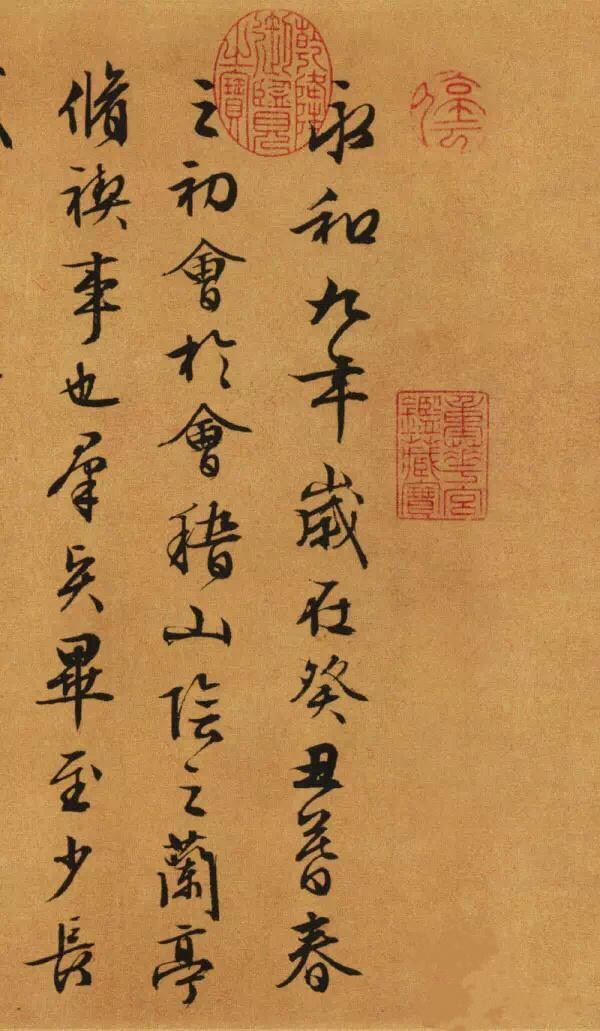 重華宮鑑藏寶
永和九年歲在癸丑暮春
乾隆御覽之寶
之初會於會稽山陰之蘭亭
脩禊事也羣賢畢至少長